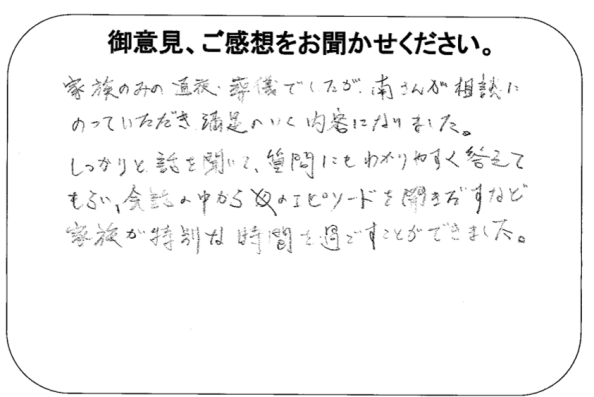 御意見、ご感想をお聞かせください。
家族のみの通夜・葬儀でしたが、南さんが相談に
のっていただき満足のいく内容になりました。
しっかりと話を聞いて、質問にもわかりやすく答えて
もらい、会話の中から父のエピソードを聞きだすなど
家族が特別な時間を過ごすことができました。